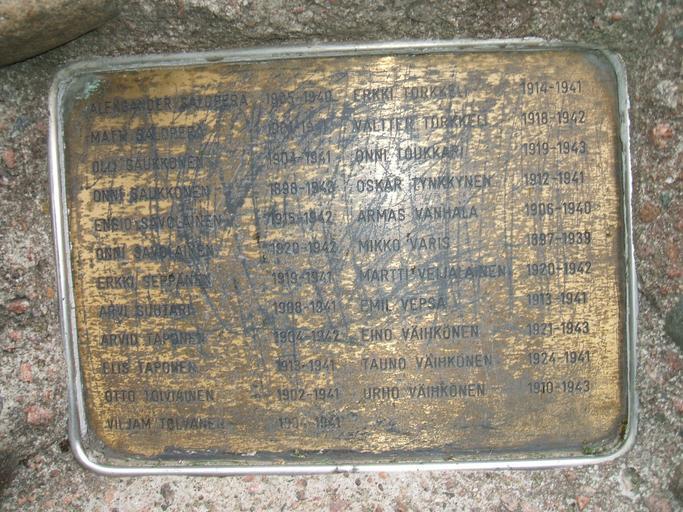 ALEKSANDER SALOPERÄ 1905-1940
MATTI SALOPERÄ
OLLI SAUKKONEN 1904-1941
ONNI SAUKKONEN
ENSIO SAVOLAINEN 1915-1942
ONNI SAVOLAINEN 1920-1942
ERKKI SEPPÄNEN 1919-1941
ARVI 1908-1941
ARVID TAPONEN 1904-1942
ELIS TAPONEN 1913-1941
OTTO TOIVIAINEN 1902-1941
VILJAM TOLVANEN 1904-1941
ERKKI TORKKELI 1914-1941
VALTTER TORKKELI 1918-1942
ONNI TOUKKARI 1919-1943
OSKAR TYNKKYNEN 1912-1941
ARMAS VANHALA 1906-1940
MIKKO VARIS 1897-1939
MARTTI VEIJALAINEN 1920-1942
EMIL VEPSÄ 1913-1941
EINO VÄIHKÖNEN 1921-1943
TAUNO VÄIHKÖNEN 1924-1941
URHO VÄIHKÖNEN 1910-1943